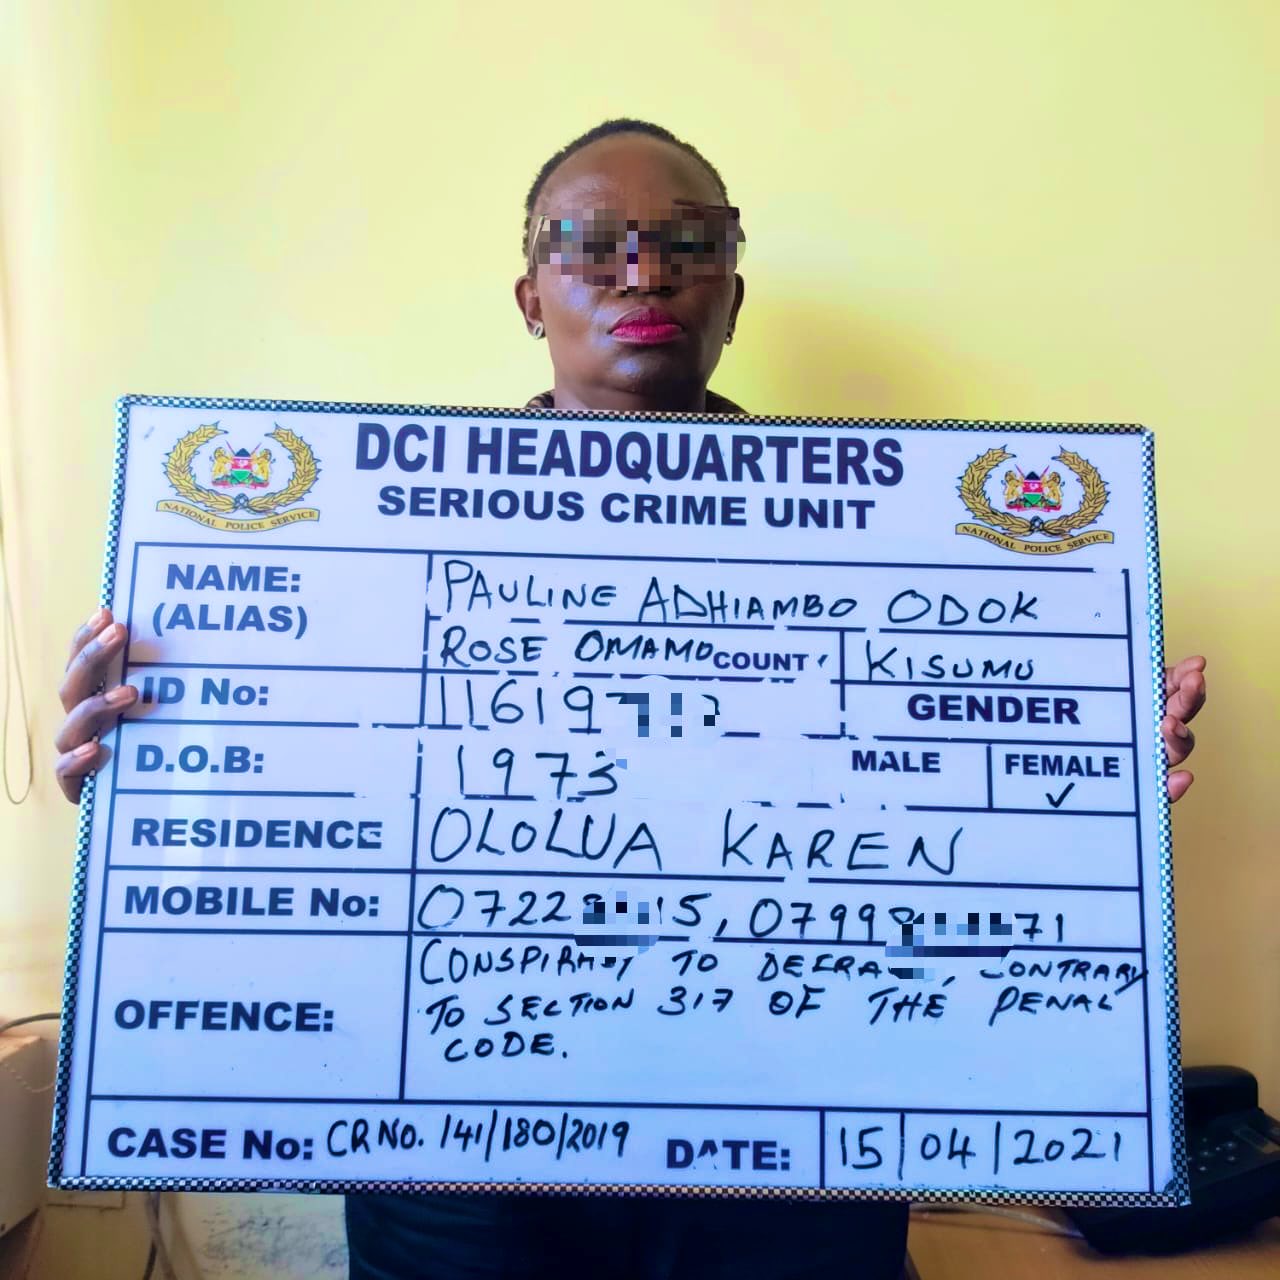 DCI HEADQUARTERS
SERIOUS CRIME UNIT
NATIONAL POLICE SERVICE
NATIONAL POLICE SERVICE
NAME: PAULINE ADHIAMBO ODOK
(ALIAS) ROSE OMAMO COUNT KISUMU
ID No: 11619
GENDER
D.O.B: 1973 MALE FEMALE ✓
RESIDENCE OLOLUA KAREN
MOBILE No: 0722 15, 0799 71
OFFENCE: CONSPIRACY TO CONTRARY
TO SECTION 317 OF THE PENAL
CODE.
CASE No: CR NO. 141/180/2019 DATE: 15/04/2021